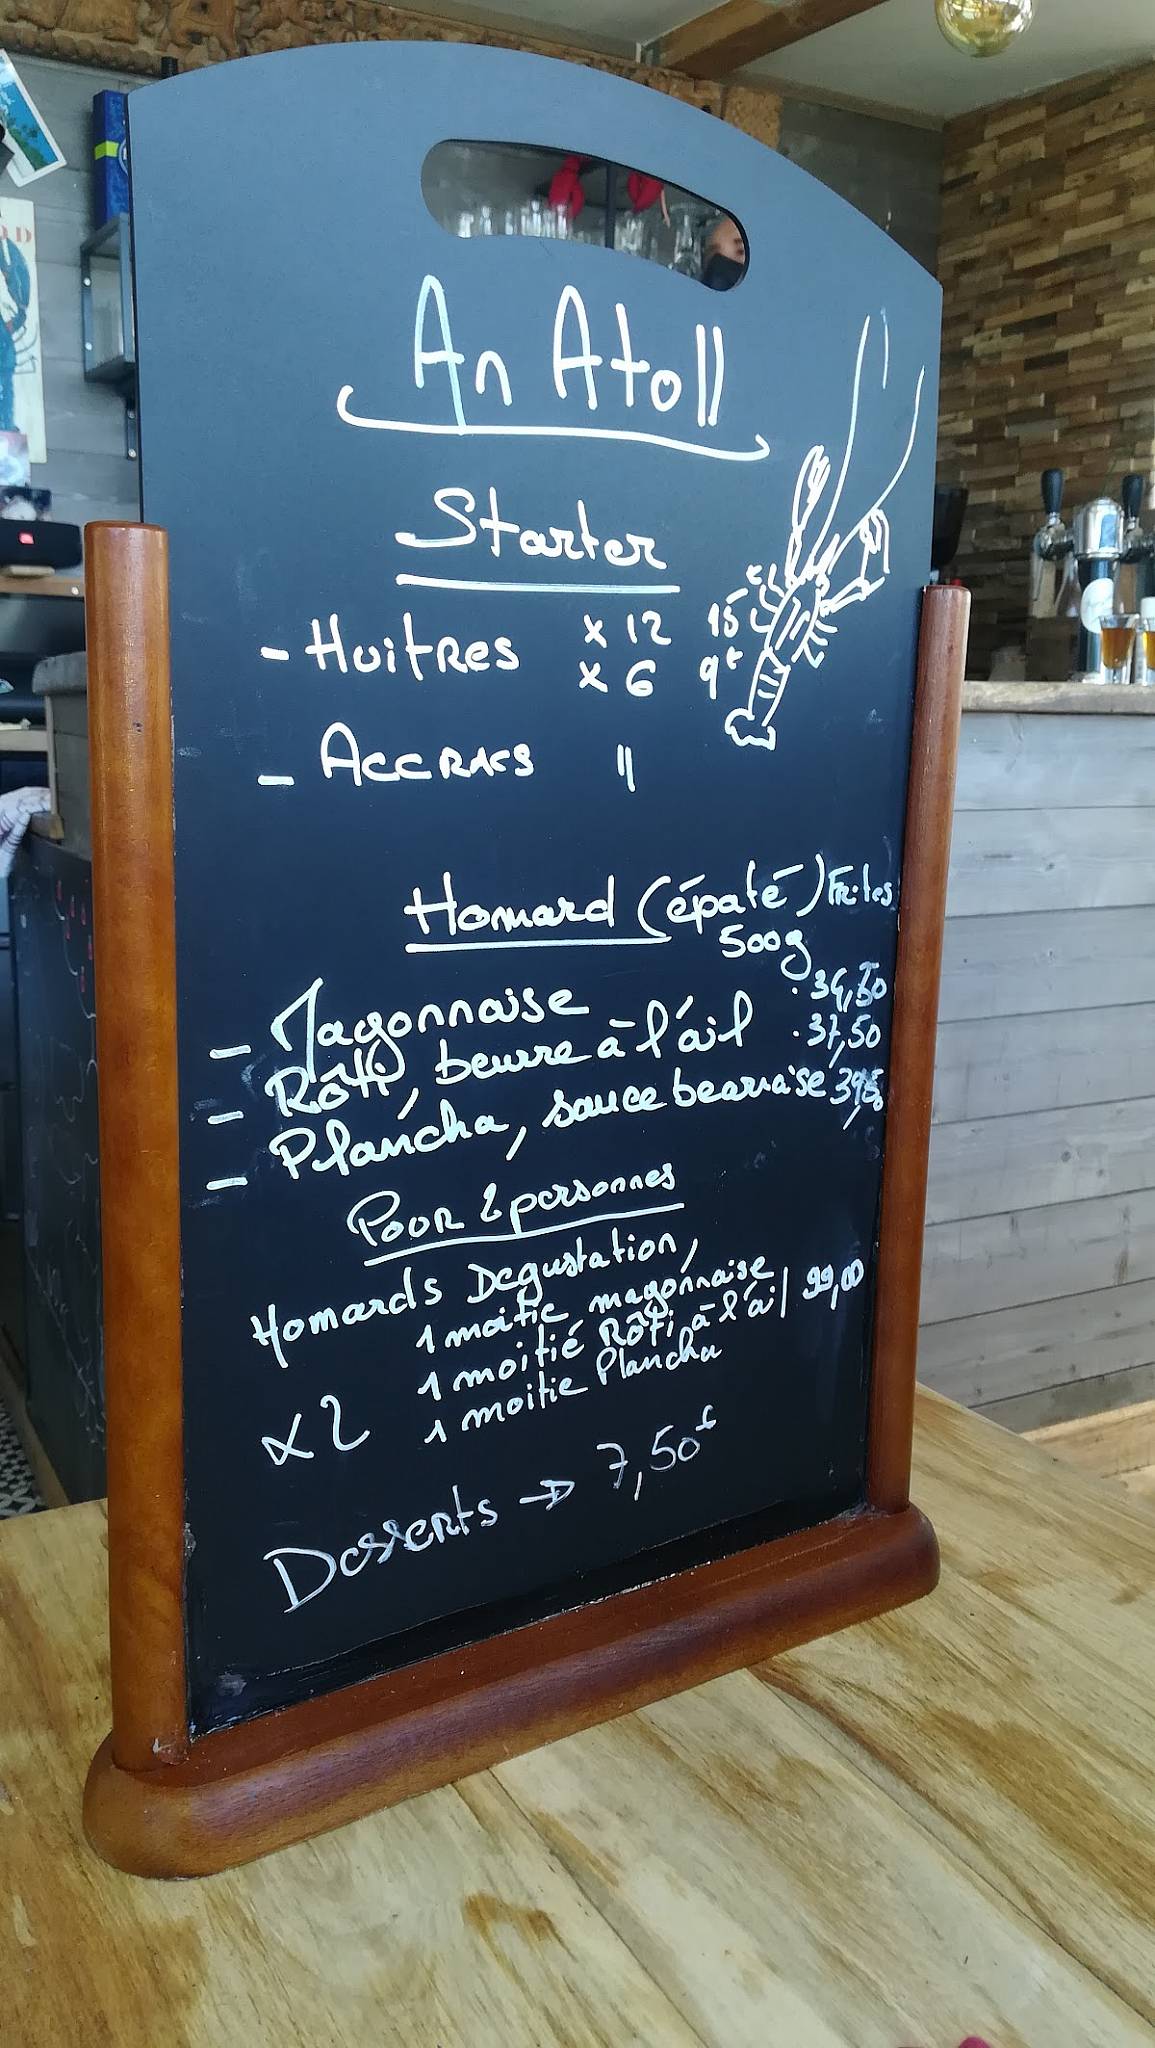 An Atoll
Starter
- Huitres x 12 15€
x 6 9€
- Accracs "
Homard (épaté) Frites
500g
- Mayonnaise . 34,50
- Rôti, beurre à l'ail . 37,50
- Plancha, sauce bearnaise
Pour 2 personnes
Homards Degustation,
1 moitie mayonnaise
1 moitié Rôti, à l'ail 99,00
x2 1 moitie Plancha
Desserts → 7,50€